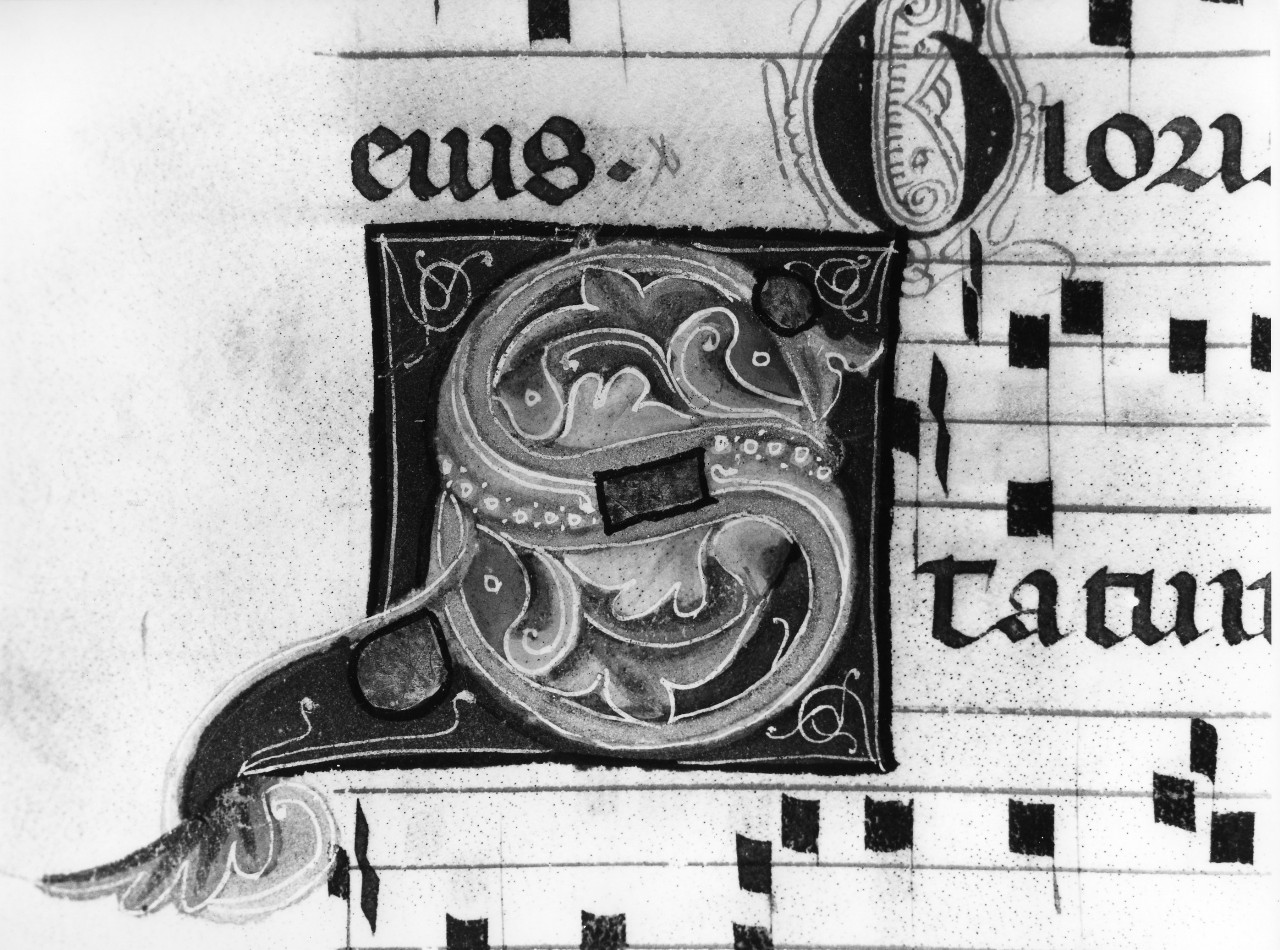 eius. Gloria
S
tatuit